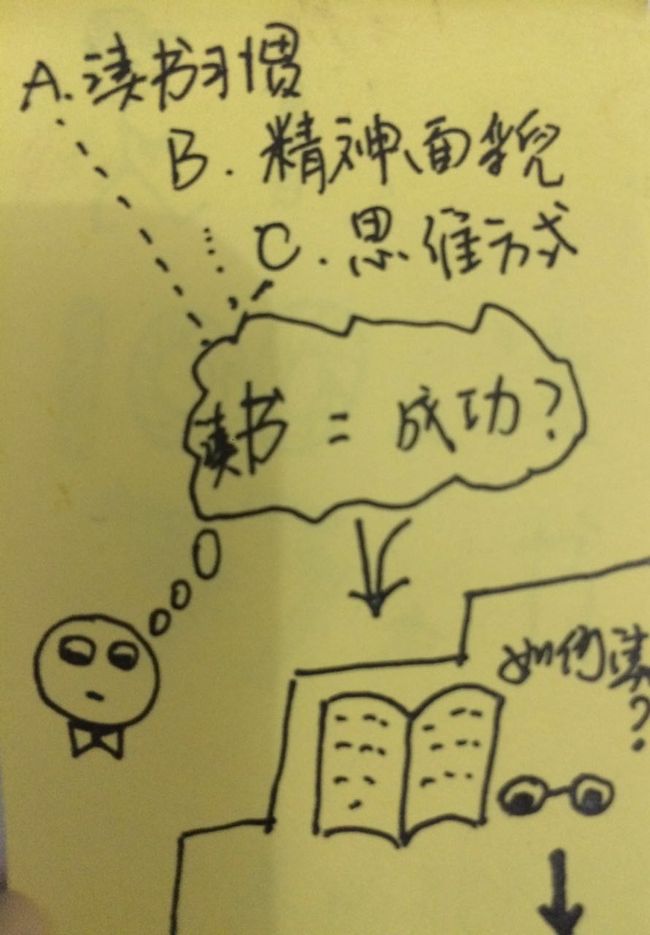 A.读书习惯
B.精神面貌
C.思维方式
读书=成功?
如何读
?